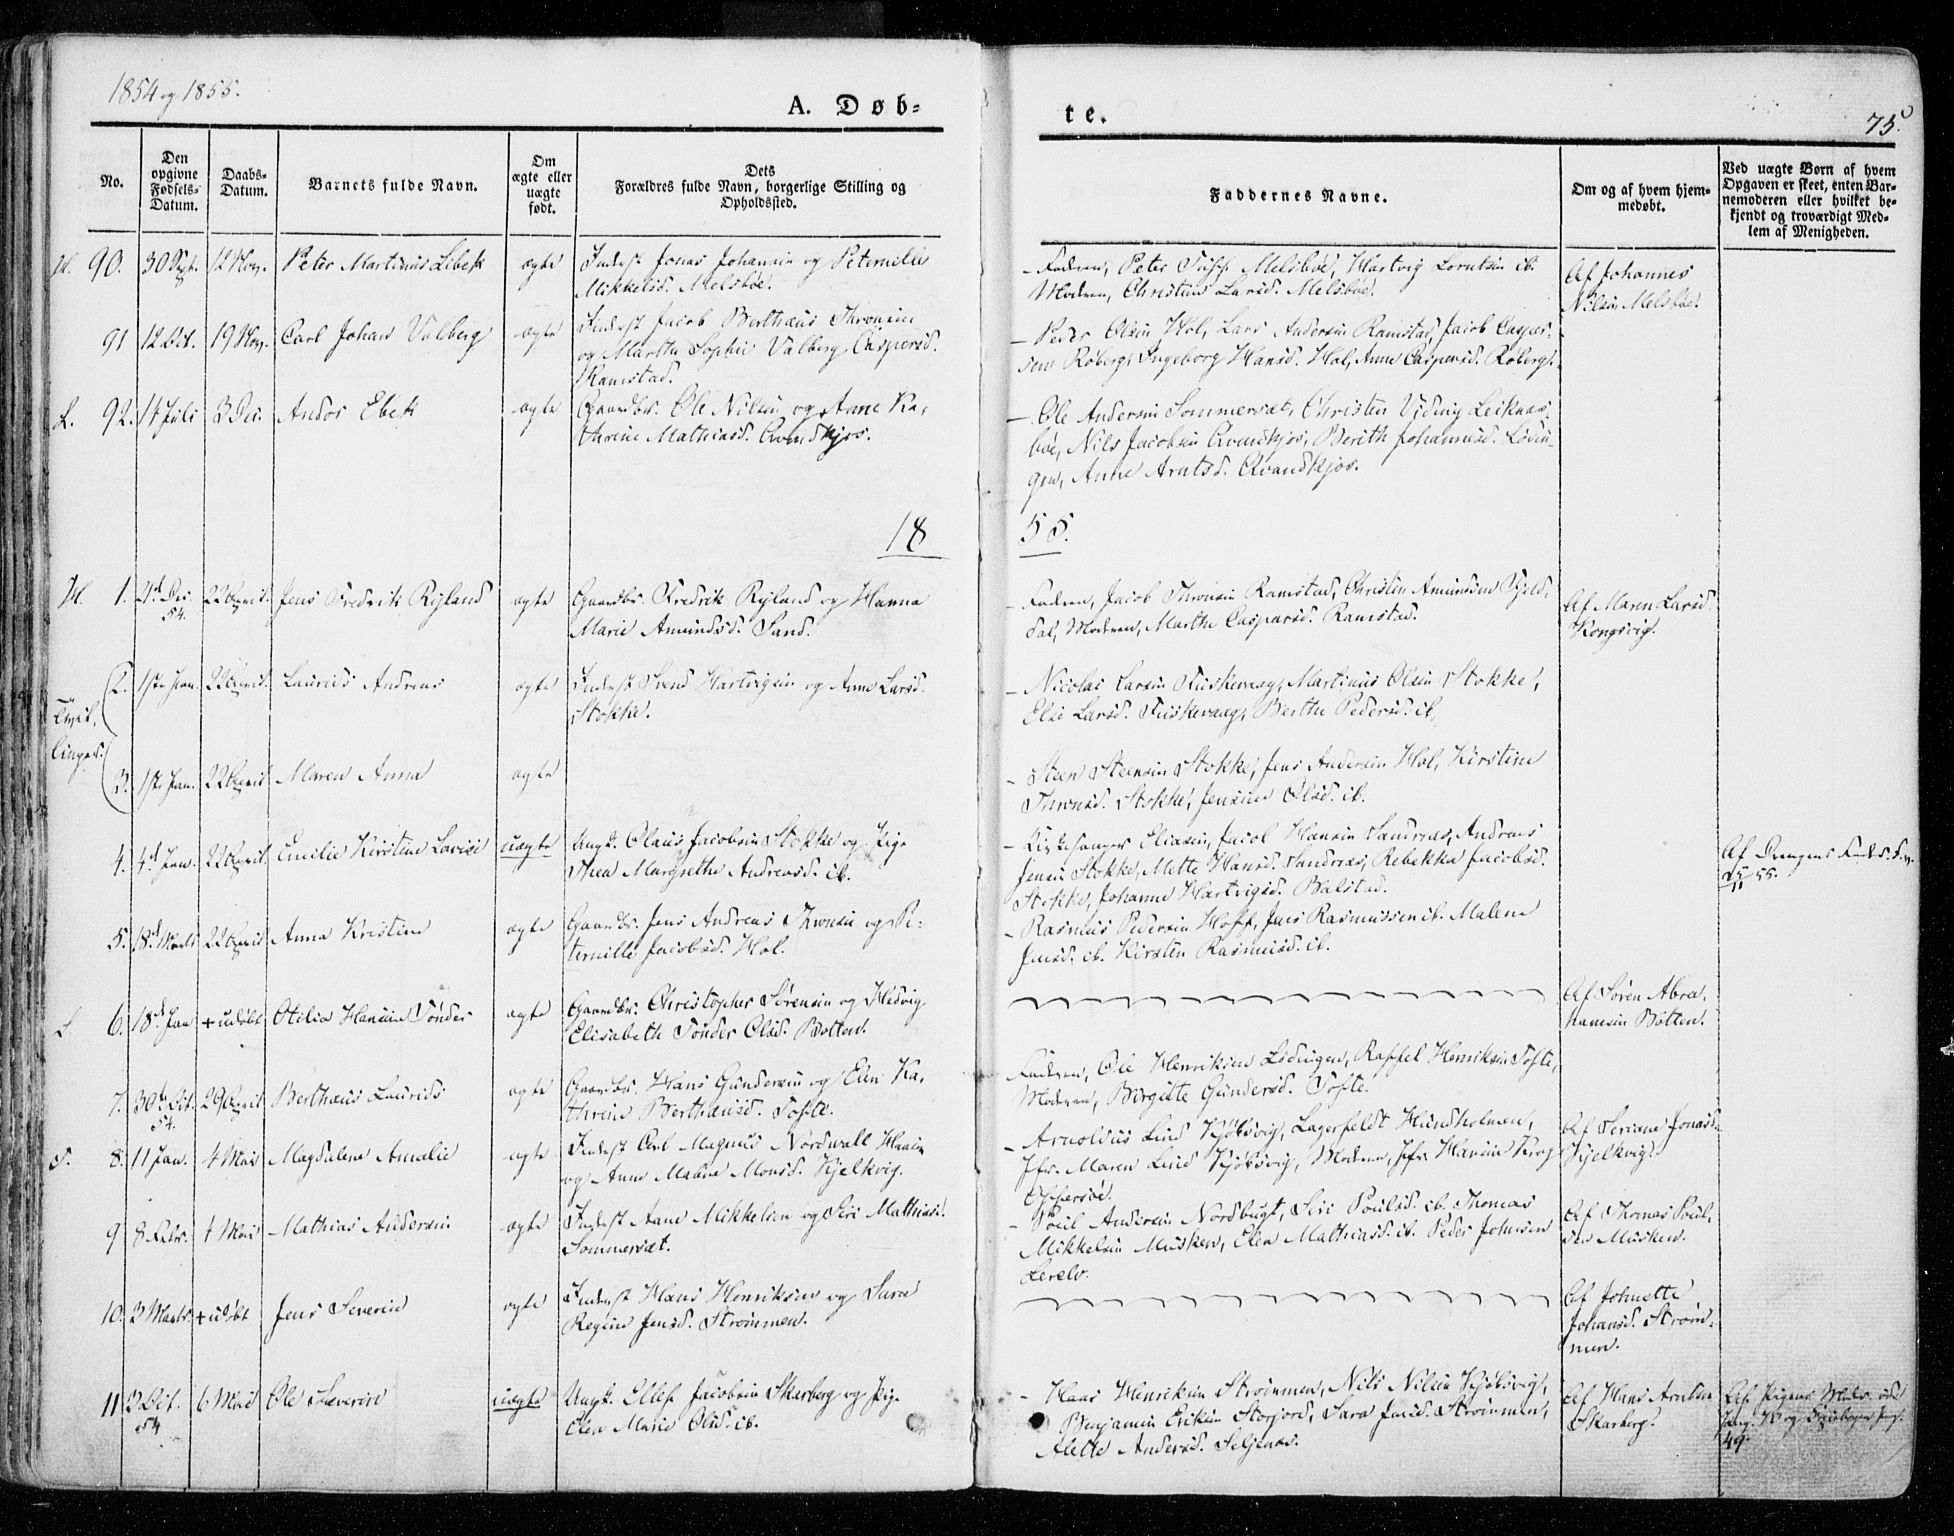 1854 og 1855.
A. Døb=
te.
75.
No.
Den opgivne Fødsels-Datum.
Daabs-Datum.
Barnets fulde Navn.
Om ægte eller uægte født.
Dets Forældres fulde Navn, borgerlige Stilling og Opholdssted.
Faddernes Navne.
Om og af hvem hjemmedøbt.
Ved uægte Børn af hvem Opgaven er skeet, enten Barnemoderen eller hvilket bekjendt og troværdigt Medlem af Menigheden.
H. 90. 30 Sept. 12 Nov. Peter Martinus Libek ægte Inderst Jonas Johansen og Peternille
Mikkelsd. Melsbøe.
– Faderen, Peter Melsbøe, Hartvig Lorntsen ib.
Moderen, Christine Larsd. Melsbøe.
Af Johannes
Nilsen Melsbøe.
91 12 Oct. 19 Nov. Carl Johan Valberg ægte Inderst Jacob Berthæus Thronsen
og Martha Sophie Valberg Caspersd.
Ramstad.
– Peder Olsen Hol, Lars Andersen Ramstad, Jacob Casper-
sen Roberg, Ingeborg Hansd. Hol, Anne Caspersd. Roberg.
L. 92. 14 Juli 3 Dec. Andor Ebek ægte Gaardbr. Ole Nilsen og Anne Ka-
thrine Mathiasd. Qvandkjos.
– Ole Andersen Sommersæt, Christen Viding Leiknes-
bøe, Nils Jacobsen Qvandkjos, Berith Johannesd. Lødin-
gen, Anne Arntsd. Qvandkjos.
18
55.
H. 1. 21d Dec. 54. 22 April. Jens Fredrik Ryland ægte Gaardbr. Fredrik Ryland og Hanna
Marie Amundsd. Sand.
– Faderen, Jacob Thronsen Ramstad, Christen Amundsen Fjeld-
dal, Moderen, Marthe Caspersd. Ramstad.
Af Maren Larsd.
Kongsvig.
Tvil-
linger.
2. 1ste Jan. 22 April. Laurids Andreas ægte Inderst Svend Hartvigsen og Anne Larsd.
Stokke.
– Nicolai Larsen Fuskevaag, Martinus Olsen Stokke,
Else Larsd. Fuskevaag, Berthe Pedersd. ib.
3. 1ste Jan. 22 April Maren Anna ægte
– Steen Steensen Stokke, Jens Andersen Hol, Kirstine
Thronsd. Stokke, Jensine Olsd. ib.
4. 4d Jan. 22 April. Emilie Kirstine Lovise uægte Ungk. Olaus Jacobsen Stokke og Pige
Thea Margrethe Andreasd. ib.
– Kirkesanger Eliasen, Jacob Hansen Sandnæs, Andreas
Jensen Stokke, Mette Hansd. Sandnæs, Rebekka Jacobsd.
Stokke, Johanne Hartvigsd. Balstad.
Af Drengens
55.
5. 18d Marts 22 April Anna Kristine ægte Gaardbr. Jens Andreas Thronsen og Pe-
ternille Jacobsd. Hol.
– Rasmus Pedersen Hoff, Jens Rasmussen ib. Malene
Jensd. ib. Kirsten Rasmusd. ib.
L 6. 18d Jan + udøbt Otilia Hansine Tønder ægte Gaardbr. Christopher Sørensen og Hedvig
Elisabeth Tønder Olsd. Botten.
Af Søren Abra-
hamsen Botten.
7. 30te Oct. 54. 29 April Berthæus Laurids ægte Gaardbr. Hans Gundersen og Elen Ka-
thrine Berthæusd. Tofte.
Faderen, Ole Henriksen Lødingen, Raphel Henriksen Tofte,
Moderen, Birgitte Gundersd. Tofte.
T. 8. 11 Jan. 4 Mai Magdalene Amalie ægte Inderst Carl Magnus Nordwall Hansen
og Anne Malene Monsd. Kjelkvig.
– Arnoldus Lind Kjøbsvig, Lagerfeldt Hundholmen,
Jfr. Maren Lind Kjøbsvig, Moderen, Jfr. Hansine Krog
Offersøe.
Af Seriane Jonasd.
Kjelkvig.
9 8 Febr. 4 Mai Mathias Andersen ægte Inderst Aane Mikkelsen og Siri Mathiasd.
Sommersæt.
– Poul Andersen Nordbugt, Siri Poulsd. ib. Thomas
Mikkelsen Musken, Elen Mathiasd. ib. Peder Johnsen
Lerelv.
Af Thomas Poul-
sen Musken.
10. 3 Marts. + udøbt Jens Severin ægte Inderst Hans Henriksen og Sara
Regine Jensd. Strømmen.
Af Johnette
Johansd. Strøm-
men.
11 3 Oct. 54 6 Mai Ole Severin uægte Ungk. Ellef Jacobsen Skarberg og Pige
Elen Marie Olsd. ib.
– Hans Henriksen Strømmen, Nils Nilsen Kjøbsvig,
Benjamin Eriksen Storjord, Sara Jensd. Strømmen,
Alette Andersd. Seljenes.
Af Hans Arntsen
Skarberg.
Af Pigens
49.